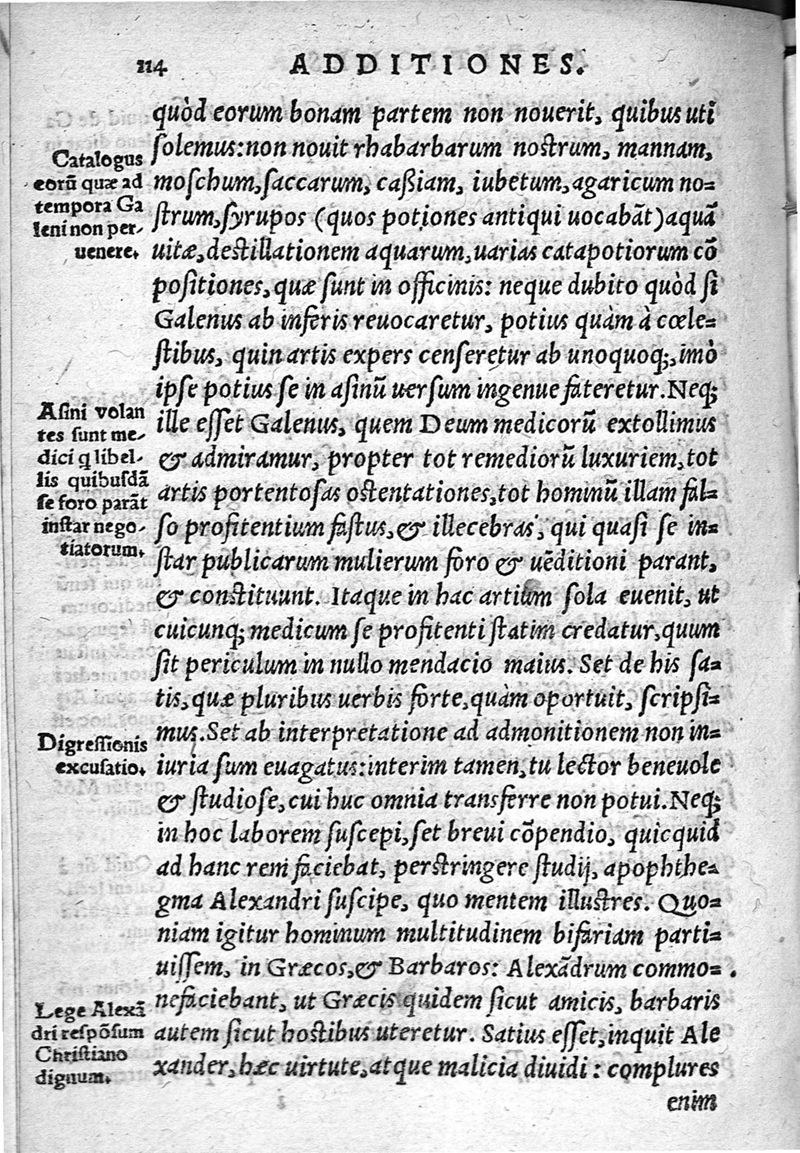 114 ADDITIONES.
quòd eorum bonam partem non nouerit, quibus uti
solemus: non nouit rhabarbarum nostrum, mannam,
moschum, saccarum, caßiam, iubetum, agaricum no-
strum, syrupos (quos potiones antiqui uocabãt) aquã
uitæ, destillationem aquarum, uarias catapotiorum cõ
positiones, quæ sunt in officinis: neque dubito quòd si
Galenus ab inferis reuocaretur, potius quàm à cœle-
stibus, quin artis expers censeretur ab unoquoq;, imò
ipse potius se in asinũ uersum ingenue fateretur. Neq;
ille esset Galenus, quem Deum medicorũ extollimus
& admiramur, propter tot remediorũ luxuriem, tot
artis portentosas ostentationes, tot hominũ illam fal-
so profitentium fastus, & illecebras, qui quasi se in-
star publicarum mulierum foro & uẽditioni parant,
& constituunt. Itaque in hac artium sola euenit, ut
cuicunq; medicum se profitenti statim credatur, quum
sit periculum in nullo mendacio maius. Set de his sa-
tis, quæ pluribus uerbis forte, quàm oportuit, scripsi-
mus. Set ab interpretatione ad admonitionem non in-
iuria sum euagatus: interim tamen, tu lector beneuole
& studiose, cui huc omnia transferre non potui. Neq;
in hoc laborem suscepi, set breui cõpendio, quicquid
ad hanc rem faciebat, perstringere studij, apophthe-
gma Alexandri suscipe, quo mentem illustres. Quo-
niam igitur hominum multitudinem bifariam parti-
uissem, in Græcos, & Barbaros: Alexãdrum commo-
nefaciebant, ut Græcis quidem sicut amicis, barbaris
autem sicut hostibus uteretur. Satius esset, inquit Ale
xander, hæc uirtute, atque malicia diuidi: complures
enim
Catalogus
eorũ quæ ad
tempora Ga
leni non per-
uenere.
Asini volan
tes sunt me-
dici q libel-
lis quibusdã
se foro parãt
instar nego-
tiatorum.
Digressionis
excusatio.
Lege Alexã
dri respõsum
Christiano
dignum.